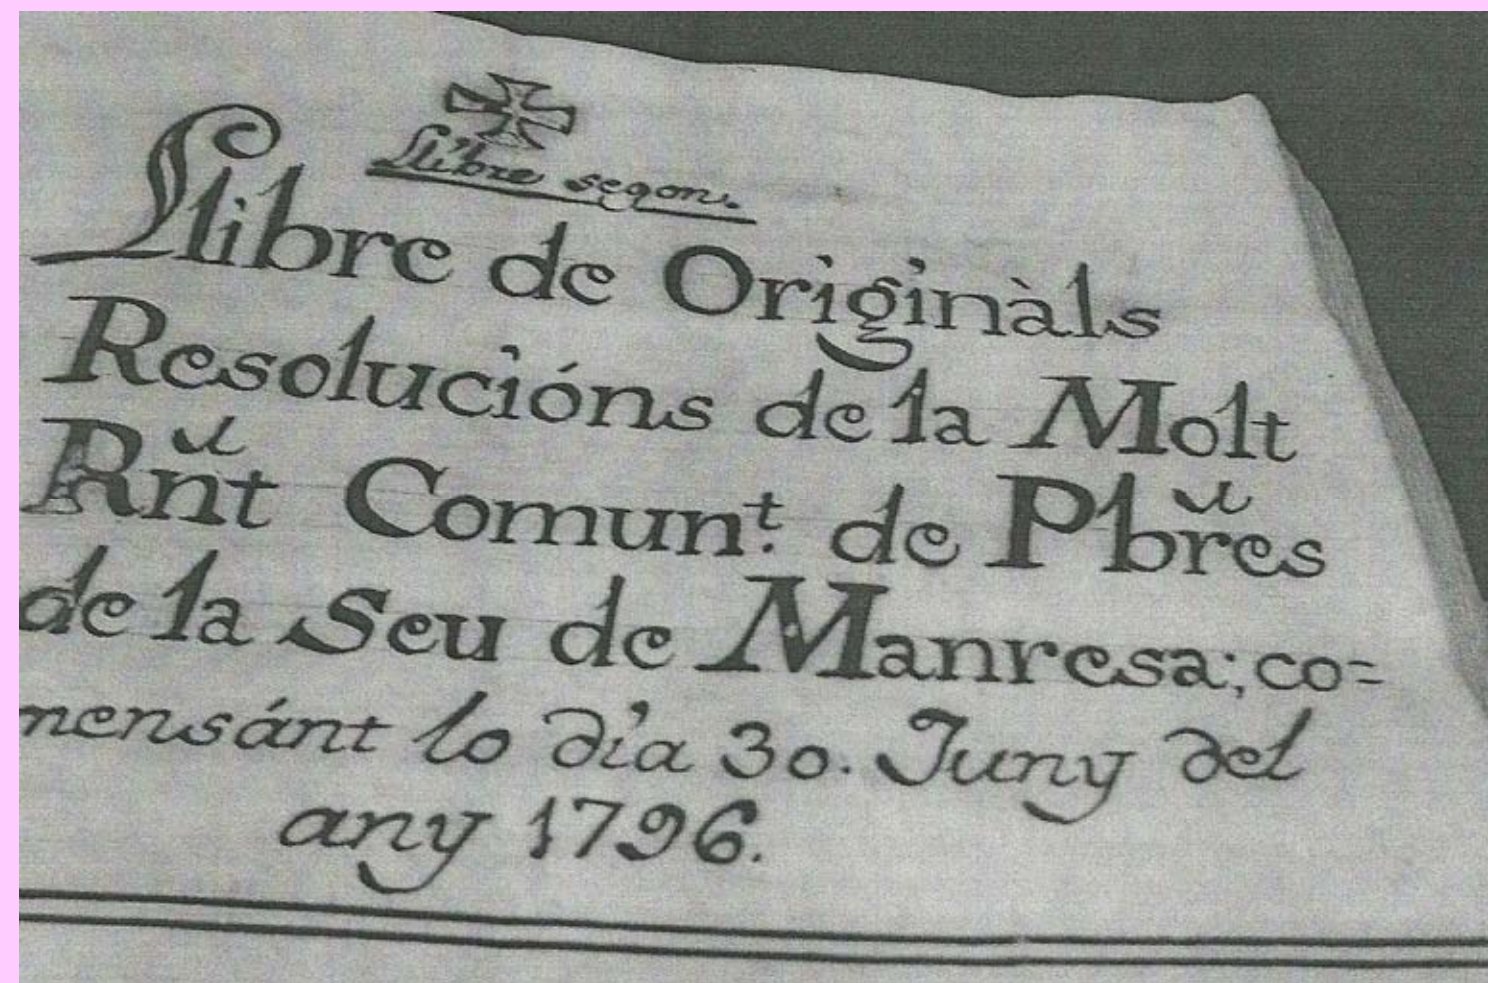 Llibre segon.
Llibre de Originàls
Resolucións de la Molt
Rnt̃ Comun.ᵗ de Pbrẽs
de la Seu de Manresa; co=
mensánt lo dia 30. Juny del
any 1796.